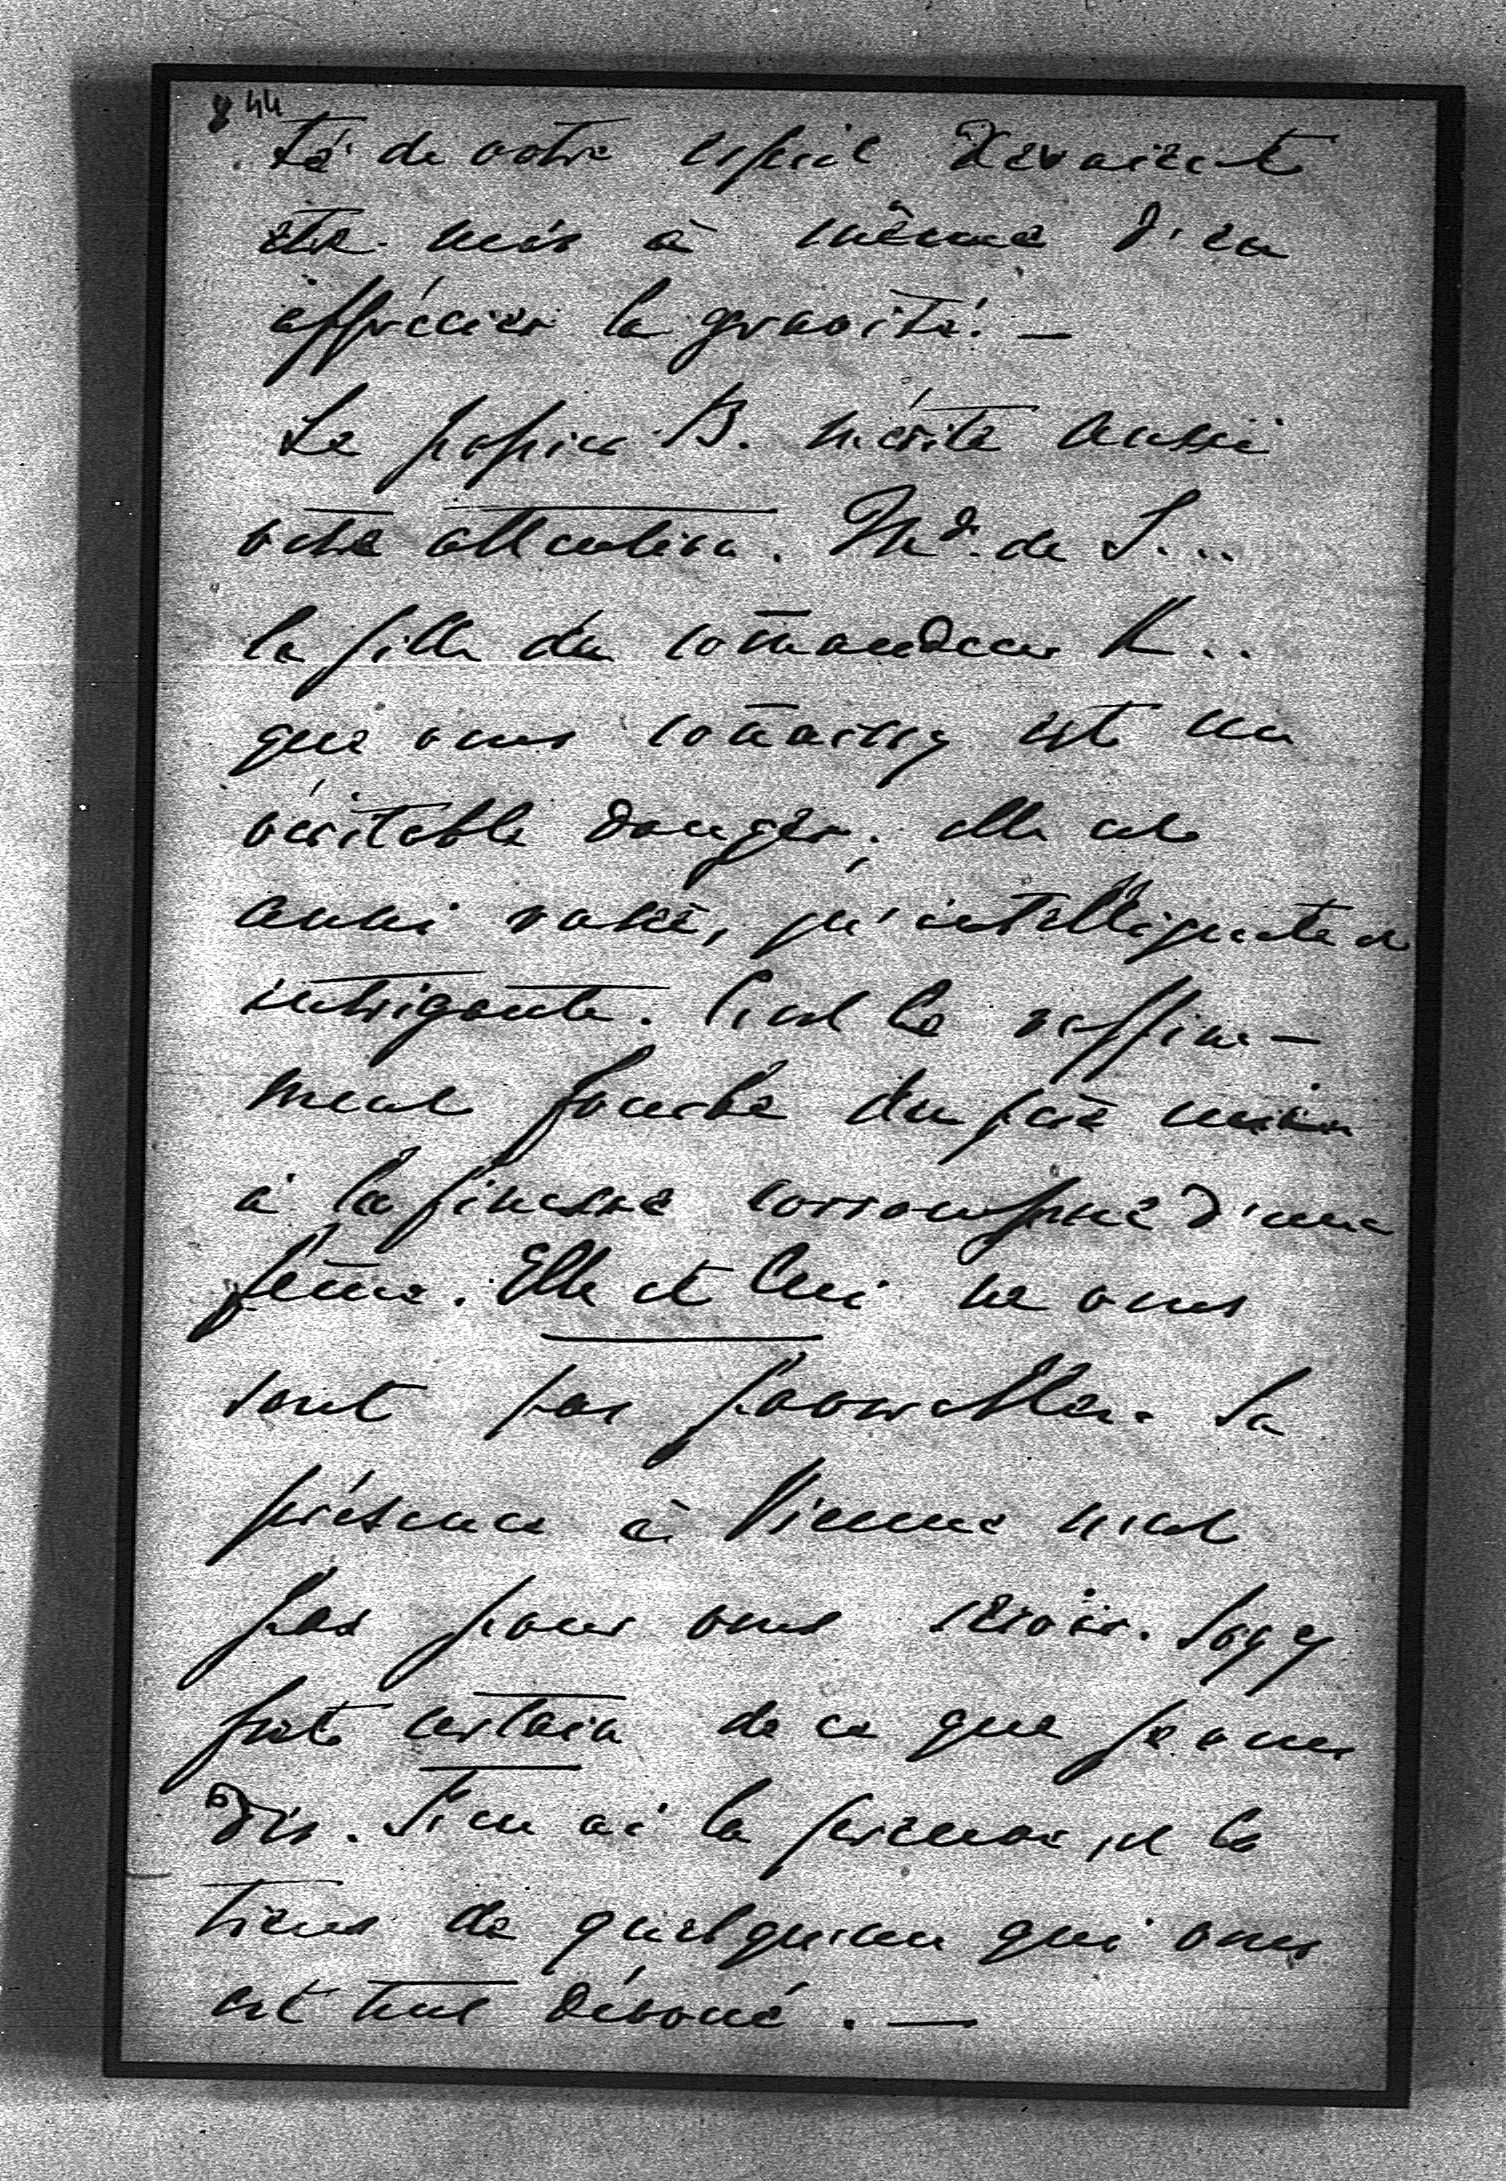 844
té de votre esprit devaient
être mis à même d'en
apprécier la gravité. —
Le papier B. mérite aussi
votre attention. Md. de S...
la fille du com̄andeur K..
que vous con̄aissez est un
véritable danger; elle est
aussi rusée, qu'intelligente et
intrigante. C'est le raffine-
ment fourbe du père
à la finesse corrompue d'une
fem̄e. Elle et lui ne vous
sont pas favorables. Sa
présence à Vienne n'est
pas pour vous servir. Soyez
fort certain de ce que je vous
dis. J'en ai la preuve, et la
tiens de quelqu'un qui vous
est tout dévoué. —